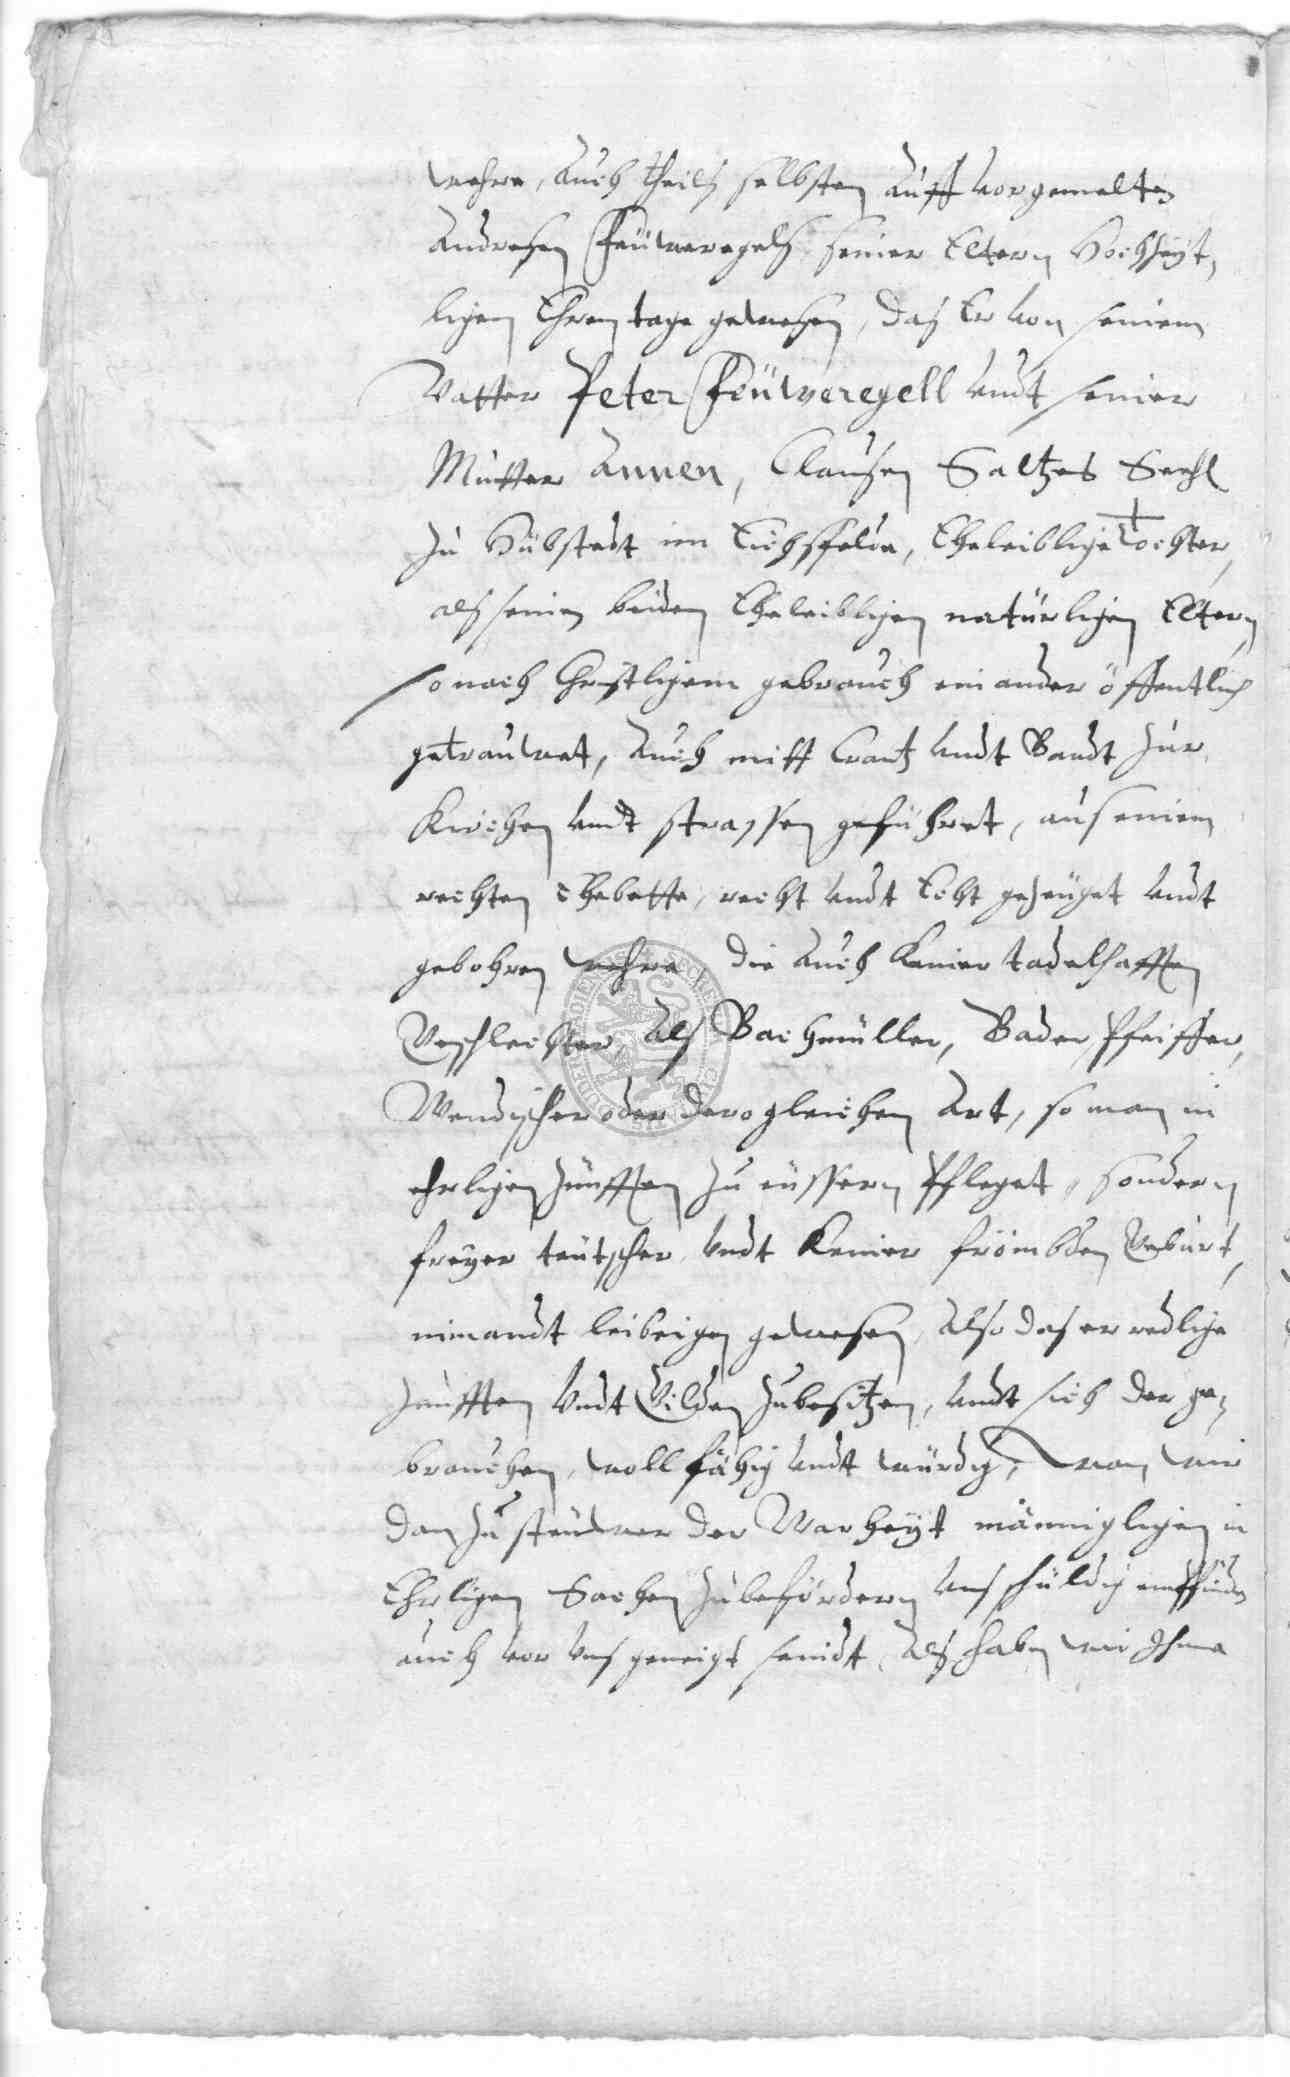 wehre, Auch theils selbsten Auff vorgemelten
Andresen Feüweregels seiner Eltern Hochzeyt,
ligen Ehrentage gewesen, das Er von seinem
Vatter Peter Feüweregell undt seiner
Mutter Annen, Clausen Saltzes Seehl
zu Hübstedt im Eichsfelde, Eheleiblige Tochter,
als seinen beiden Eheleibligen natürligen Eltern
so nach Christligem gebrauch einander öffentlich
getrauwet, Auch mitt Crantz undt Bandt zur
Kirchen undt strassen geführet, aus einem
rechten Ehebette, recht undt Echt gezeüget undt
gebohren wehre, die Auch Keiner tadelhafften
Geschlechter, Als Bachmüller, Bader, Pfeiffer,
Wendischer oder dero gleichen Art, so man in
ehrligen Zünfften zu eüssern Pfleget, sondern
freyer teütscher undt Keiner frömbden Geburt,
nimandt leibeigen gewesen, Also das er redlige
Zunfften undt Gilden zubesitzen, undt sich der ge,
brauchen, woll fähig undt würdig, wan wir
dan zu steüwer der Warheyt männigligen in
Ehrligen Sachen zubefördern uns schüldig empfinden
auch vor uns geneigt seindt, Als haben wir Ihme